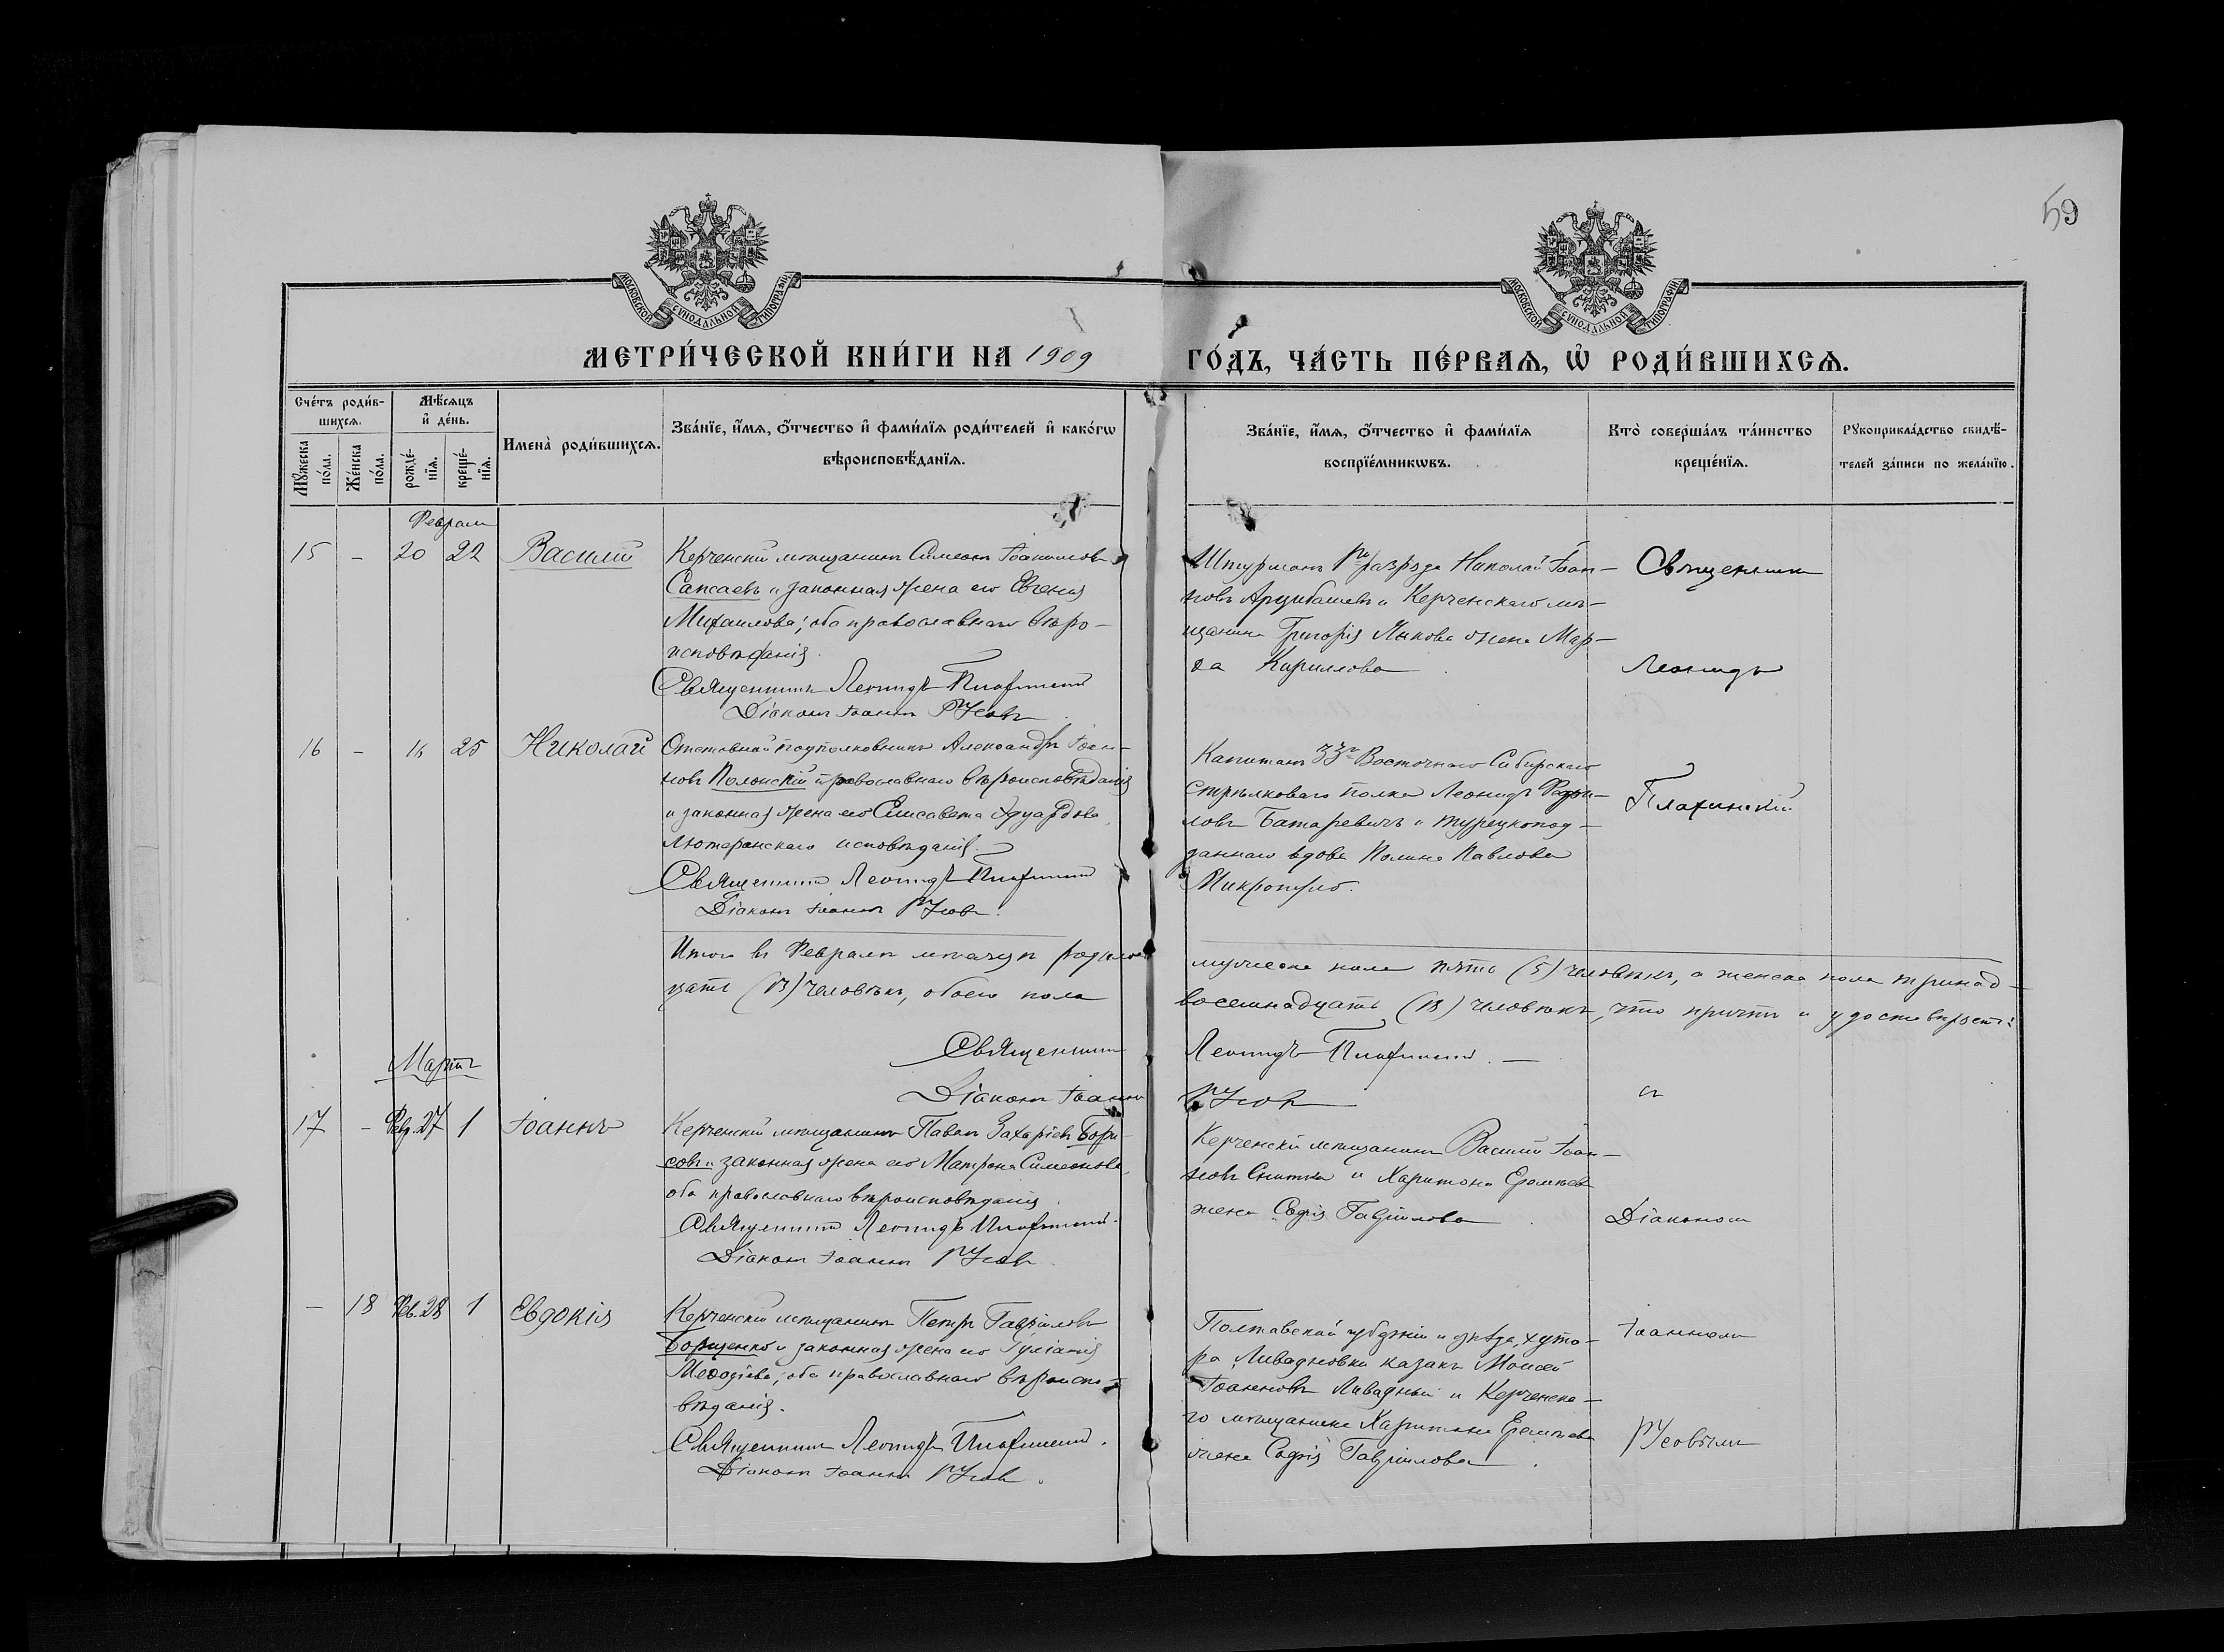 59
МОСКОВСКОЙ СѴНОДАЛЬНОЙ ТИПОГРАФІИ
МОСКОВСКОЙ СѴНОДАЛЬНОЙ ТИПОГРАФІИ
МЕТРИ́ЧЕСКОЙ КНИ́ГИ НА 1909 ГО́ДЪ, ЧА́СТЬ ПЕ́РВАѦ, Ѡ҆ РОДИ́ВШИХСѦ.
Сче́тъ роди́в-
шихсѧ.
Мꙋ́жеска по́ла.
Же́нска по́ла.
Мѣ́сѧцъ
и҆ де́нь.
рожде́-
нїѧ.
креще́-
нїѧ.
Имена̀ роди́вшихсѧ.
Зва́нїе, и҆́мѧ, ѻ҆́тчество и҆ фами́лїѧ роди́телей и҆ како́гѡ
вѣроисповѣ́данїѧ.
Зва́нїе, и҆́мѧ, ѻ҆́тчество и҆ фами́лїѧ
воспрїе́мникѡвъ.
Кто̀ соверша́лъ та́инство
креще́нїѧ.
Рꙋкоприкла́дство свидѣ́-
телей за́писи по жела́нїю.
Февраль
15 – 20 22 Василій
Керченскій мѣщанинъ Симеонъ Іоакимовъ
Сапсаевъ и законная жена его Евгенія
Михаилова; оба православнаго вѣро-
исповѣданія.
Священникъ Леонидъ
Діаконъ Іоаннъ Русовъ
Штурманъ 1го разряда Николай Іоан-
новъ Арцибашевъ и Керченскаго мѣ-
щанина Григорія Лыкова жена Мар-
ѳа Кириллова
Священникъ
Леонидъ
16 – 25 Николай
Отставной подполковникъ Александръ Іоан-
новъ Полонскій православнаго вѣроисповѣданія
и законная жена его Елисавета Эдуардова
лютеранскаго исповѣданія.
Священникъ Леонидъ
Діаконъ Іоаннъ Русовъ.
Капитанъ 33го Восточнаго Сибирскаго
Стрѣлковаго полка Леонидъ
ловъ Батаревичъ и турецкопод-
даннаго вдова Полина Павлова
Итого въ Февралѣ мѣсяцѣ родилось мужеска пола пять (5) человѣкъ, а женска пола тринад-
цать (13) человѣкъ, обоего пола восемнадцать (18) человѣкъ, что причтъ и удостовѣряетъ:
Священникъ Леонидъ
Діаконъ Іоаннъ Русовъ
Мартъ
17 – Фев. 27 1 Іоаннъ
Керченскій мѣщанинъ Павелъ Захаріевъ Бори-
совъ и законная жена его Матрона Симеонова,
оба православнаго вѣроисповѣданія.
Священникъ Леонидъ
Діаконъ Іоаннъ Русовъ
Керченскій мѣщанинъ Василій Іоан-
новъ Снитка и Харитона Еремѣева
жена Софія Гавріилова
Діакономъ
– 18 Фев. 28 1 Евдокія
Керченскій мѣщанинъ Петръ Гавріиловъ
Борщенко и законная жена его Іуліанія
Меѳодіева; оба православнаго вѣроиспо-
вѣданія.
Священникъ Леонидъ
Діаконъ Іоаннъ Русовъ.
Полтавской губерніи и уѣзда, хуто-
ра Ливадновки казакъ Моисей
Іоанновъ Ливадный и Керченска-
го мѣщанина Харитона Еремѣева
жена Софія Гавріилова.
Іоанномъ
Русовымъ